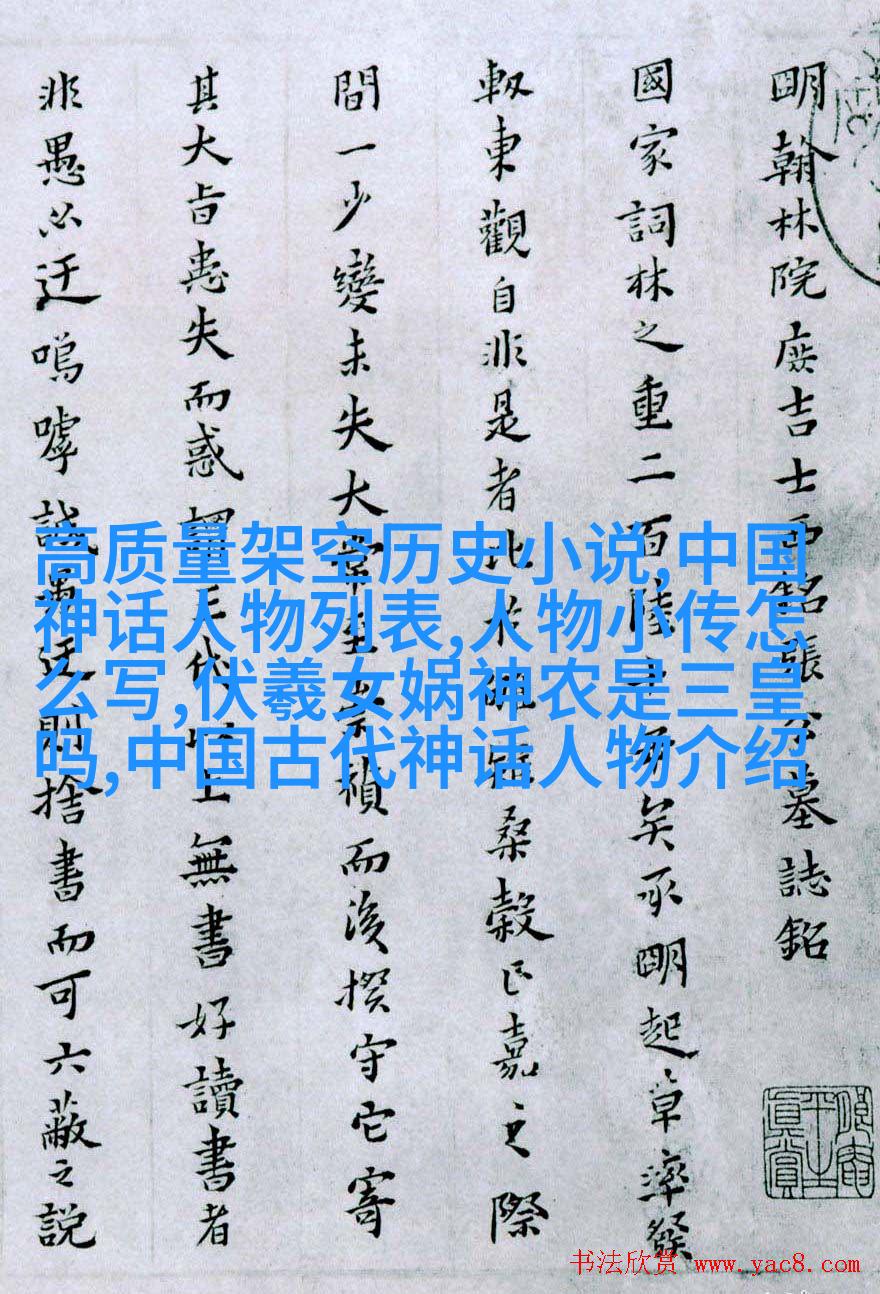 明翰林院庶吉士西銘張公墓誌銘
國家詞林之重二百陸十年矣承明起草淬發
東觀自非是者北於桑穀正嘉之際
間一少變未失大崇禎而後揆守它寄
其大旨患失而惑三代以上無書好讀書者
非愚必迂嗚嘑誠愚迂則捨書而可六蔽之説
高质量架空历史小说,中国
神话人物列表,人物小传怎
么写,伏羲女娲神农是三皇
吗,中国古代神话人物介绍
书法欣赏 www.yac8.com